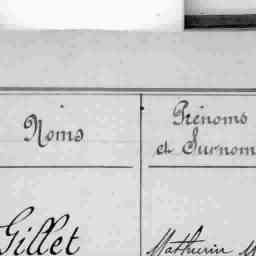 Noms
Prénoms
et Surnom
Gillet
Mathurin